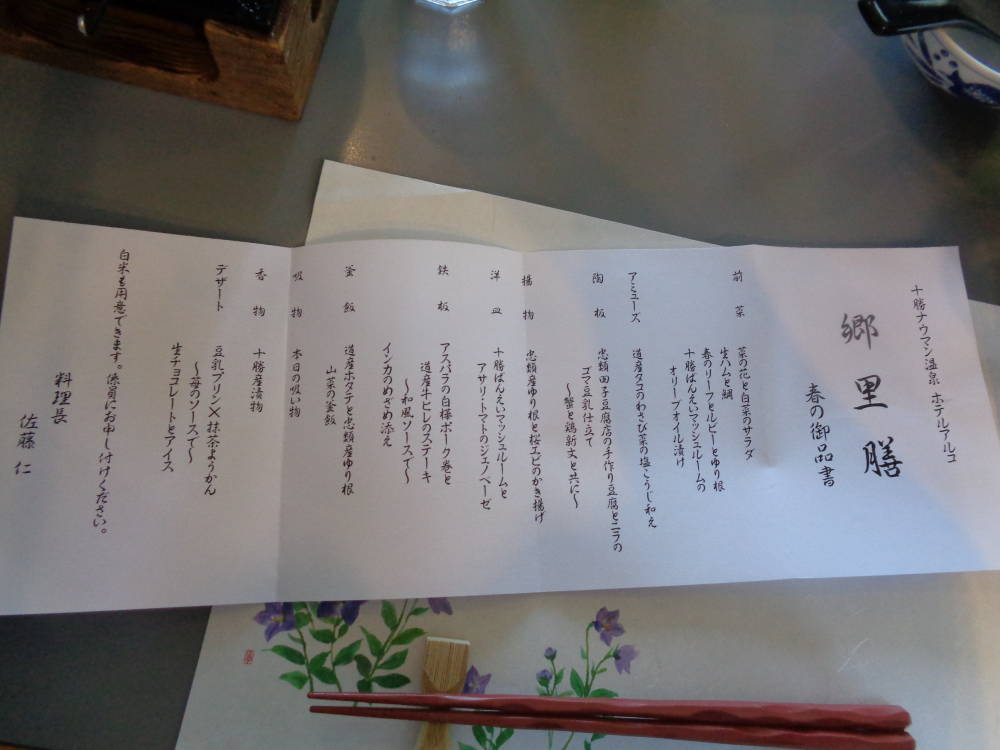 十勝ナウマン温泉 ホテルアルコ
郷里膳
春の御品書
前菜 菜の花と白菜のサラダ
生ハムと鯛
春のリーフとルビーとゆり根
十勝ばんえいマッシュルームの
オリーブオイル漬け
アミューズ 道産タコのわさび菜の塩こうじ和え
陶板 忠類田子豆腐店の手作り豆腐とニラの
ゴマ豆乳仕立て
〜蟹と鶏新丈と共に〜
揚物 忠類産ゆり根と桜エビのかき揚げ
洋皿 十勝ばんえいマッシュルームと
アサリ・トマトのジェノベーゼ
鉄板 アスパラの白樺ポーク巻と
道産牛ヒレのステーキ
〜和風ソースで〜
インカのめざめ添え
釜飯 道産ホタテと忠類産ゆり根
山菜の釜飯
吸物 本日の吸い物
香物 十勝産漬物
デザート 豆乳プリン×抹茶ようかん
〜苺のソースで〜
生チョコレートとアイス
白米も用意できます。係員にお申し付けください。
料理長
佐藤 仁